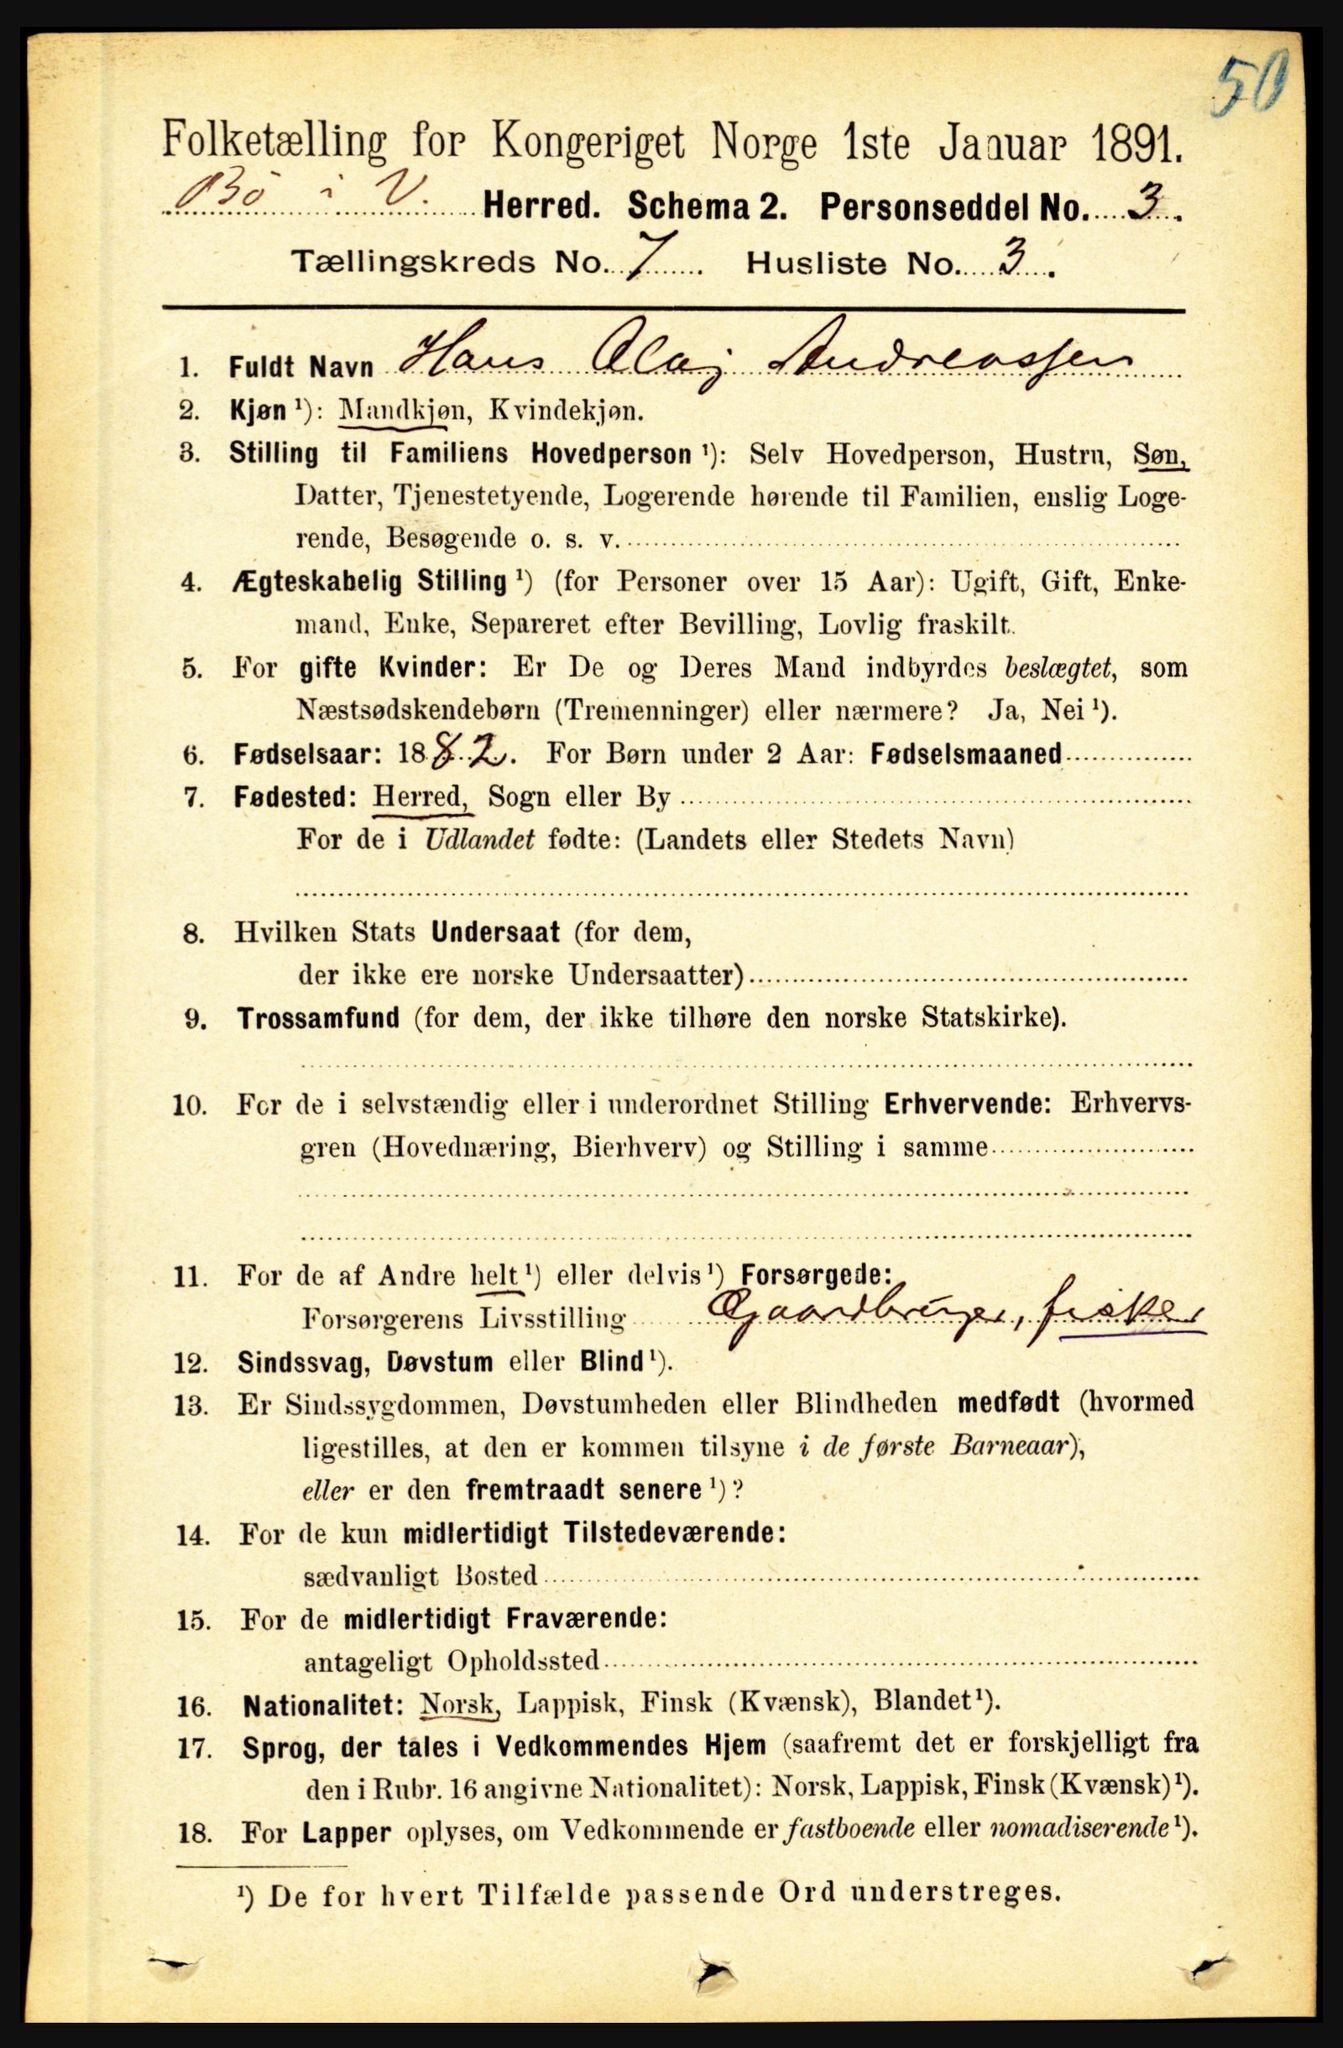 50
Folketælling for Kongeriget Norge 1ste Januar 1891.
Bö i V. Herred. Schema 2. Personseddel No. 3.
Tællingskreds No. 7 Husliste No. 3.
1. Fuldt Navn Hans Olaj Andreassen
2. Kjøn ¹): Mandkjøn, Kvindekjøn.
3. Stilling til Familiens Hovedperson ¹): Selv Hovedperson, Hustru, Søn,
Datter, Tjenestetyende, Logerende hørende til Familien, enslig Loge-
rende, Besøgende o. s. v.
4. Ægteskabelig Stilling ¹) (for Personer over 15 Aar): Ugift, Gift, Enke-
mand, Enke, Separeret efter Bevilling, Lovlig fraskilt.
5. For gifte Kvinder: Er De og Deres Mand indbyrdes beslægtet, som
Næstsødskendebørn (Tremenninger) eller nærmere? Ja, Nei ¹).
6. Fødselsaar: 1882. For Børn under 2 Aar: Fødselsmaaned
7. Fødested: Herred, Sogn eller By
For de i Udlandet fødte: (Landets eller Stedets Navn)
8. Hvilken Stats Undersaat (for dem,
der ikke ere norske Undersaatter)
9. Trossamfund (for dem, der ikke tilhøre den norske Statskirke).
10. For de i selvstændig eller i underordnet Stilling Erhvervende: Erhvervs-
gren (Hovednæring, Bierhverv) og Stilling i samme
11. For de af Andre helt ¹) eller delvis ¹) Forsørgede:
Forsørgerens Livsstilling Gaardbruger, fisker
12. Sindssvag, Døvstum eller Blind ¹).
13. Er Sindssygdommen, Døvstumheden eller Blindheden medfødt (hvormed
ligestilles, at den er kommen tilsyne i de første Barneaar),
eller er den fremtraadt senere ¹)?
14. For de kun midlertidigt Tilstedeværende:
sædvanligt Bosted
15. For de midlertidigt Fraværende:
antageligt Opholdssted
16. Nationalitet: Norsk, Lappisk, Finsk (Kvænsk), Blandet ¹).
17. Sprog, der tales i Vedkommendes Hjem (saafremt det er forskjelligt fra
den i Rubr. 16 angivne Nationalitet): Norsk, Lappisk, Finsk (Kvænsk) ¹).
18. For Lapper oplyses, om Vedkommende er fastboende eller nomadiserende ¹).
¹) De for hvert Tilfælde passende Ord understreges.